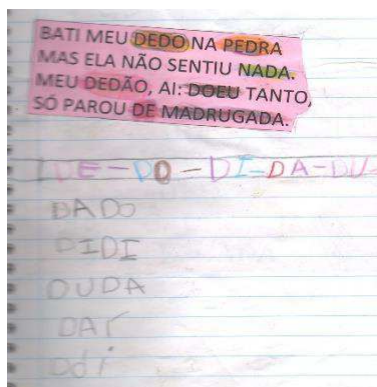 BATI MEU DEDO NA PEDRA
MAS ELA NÃO SENTIU NADA.
MEU DEDÃO, AI: DOEU TANTO,
SÓ PAROU DE MADRUGADA.
DE-DO-DI-DA-DU-
DADO
DIDI
DUDA
DAÍ